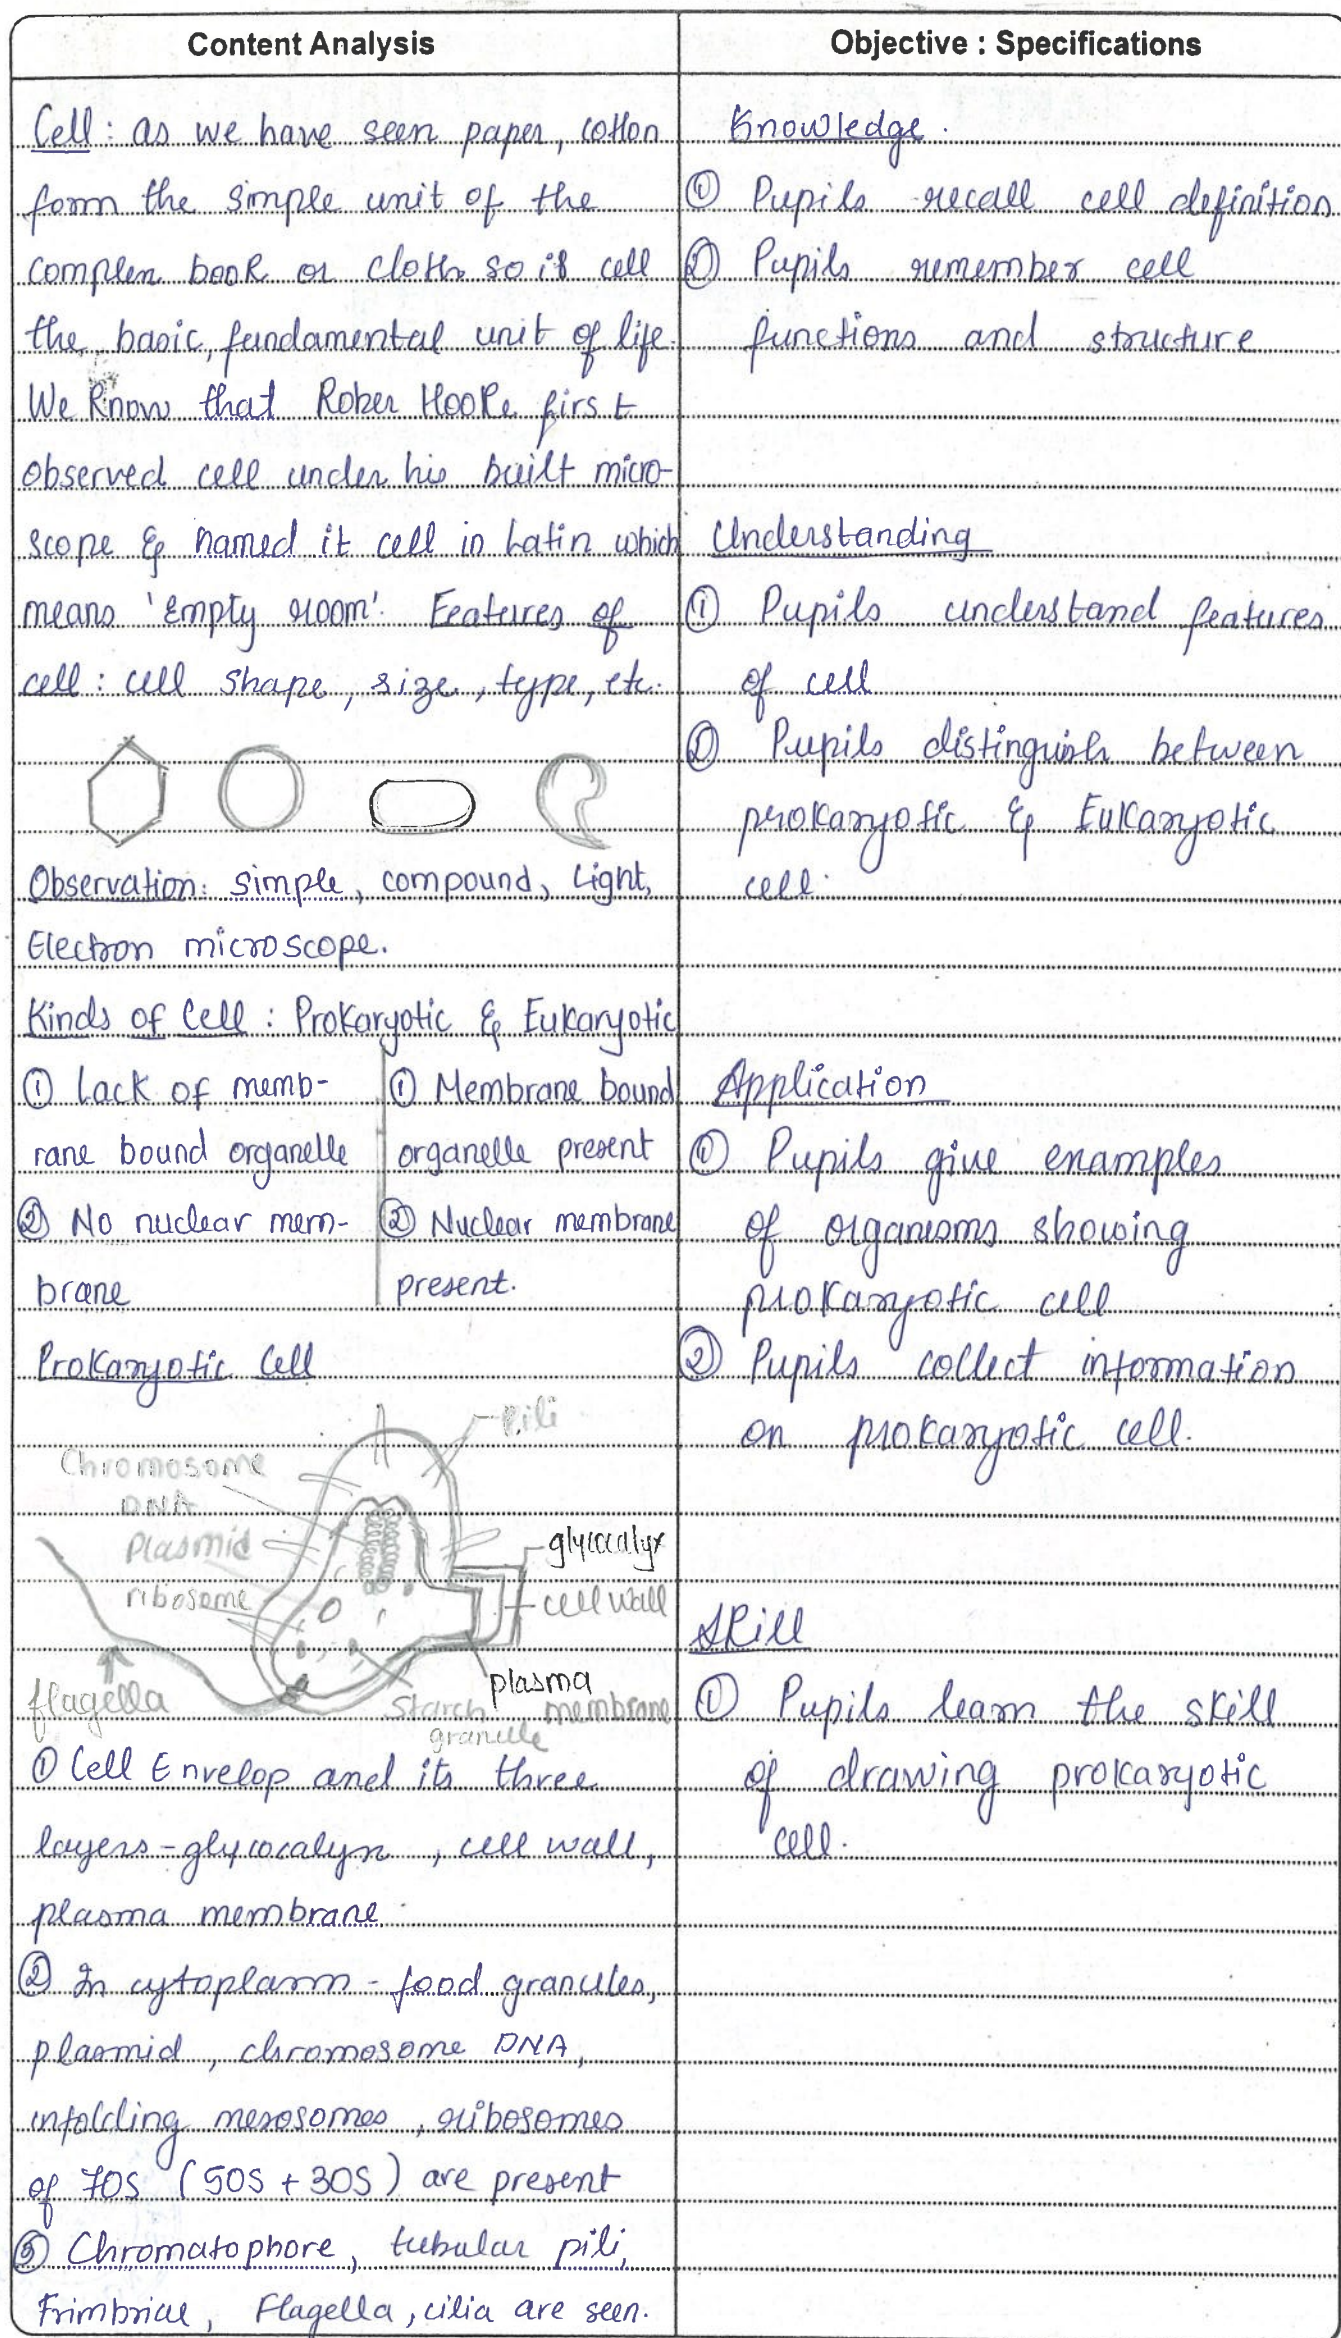 Content Analysis
Cell: as we have seen paper, cotton
form the simple unit of the
complex book or cloth so is cell
the basic, fundamental unit of life.
We know that Rober Hooke first
observed cell under his built micro-
scope & named it cell in Latin which
means 'Empty room'. Features of
cell: cell shape, size, type, etc.
Observation: simple, compound, Light,
Electron microscope.
Kinds of Cell: Prokaryotic & Eukaryotic
① Lack of memb-
rane bound organelle
② No nuclear mem-
brane
① Membrane bound
organelle present
② Nuclear membrane
present.
Prokaryotic Cell
Pili
Chromosome
DNA
Plasmid
ribosome
glycocalyx
cell wall
plasma
membrane
flagella
Starch
granule
① Cell Envelop and its three
layers - glycocalyx, cell wall,
plasma membrane.
② In cytoplasm - food granules,
plasmid, chromosome DNA,
infolding mesosomes, ribosomes
of 70S (50S + 30S) are present
③ Chromatophore, tubular pili,
Frimbriae, Flagella, cilia are seen.
Objective : Specifications
Knowledge.
① Pupils recall cell definition
② Pupils remember cell
functions and structure
Understanding
① Pupils understand features
of cell
② Pupils distinguish between
prokaryotic & Eukaryotic
cell.
Application
① Pupils give examples
of organisms showing
prokaryotic cell
② Pupils collect information
on prokaryotic cell.
Skill
① Pupils learn the skill
of drawing prokaryotic
cell.